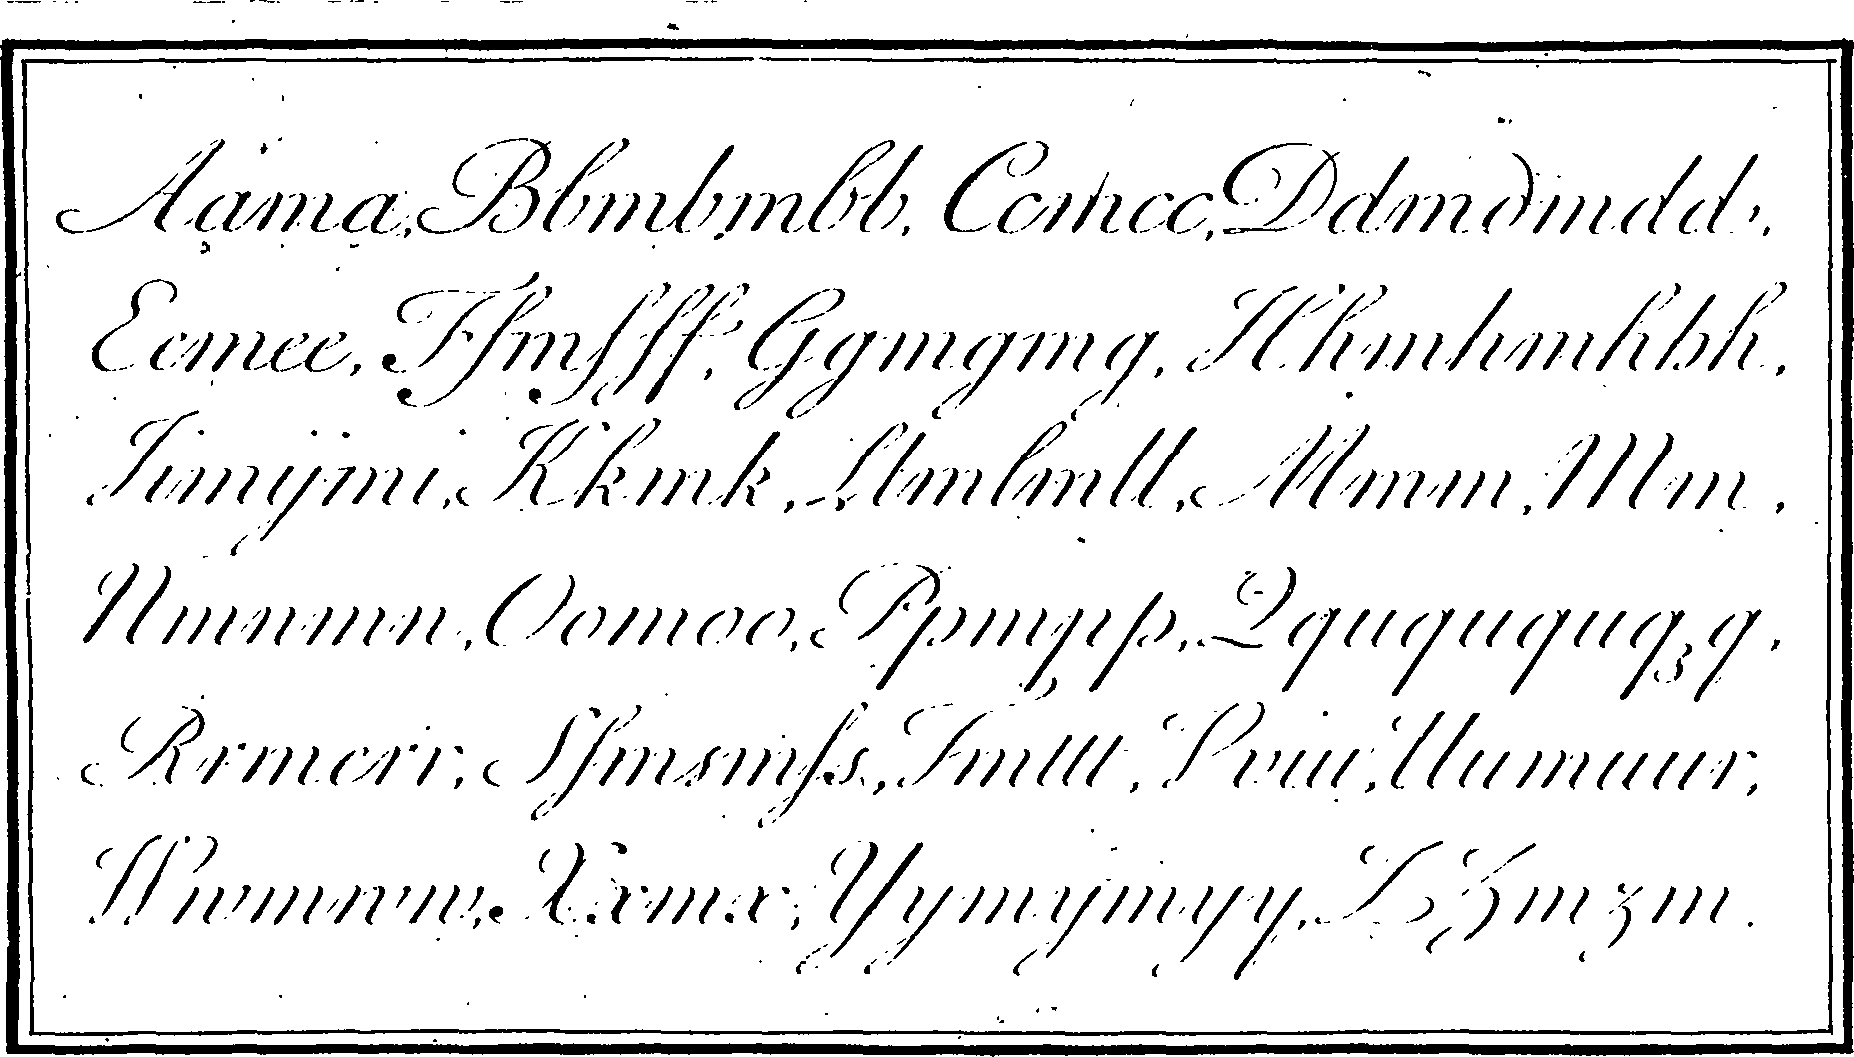 Aama, Bbmbmbb, Ccmcc, Ddmdmdd,
Eemee, Ffmſff, Ggmgmg, Hhmhmhhh,
Iimijmi, Kkmk, Llmlmll, Mmmm, Mm,
Nmnmn, Oomoo, Ppmpp, Qququququqq,
Rrmrrr, Sſmsmſs, Tmttt, Vviu, Uumuur,
Wwmwvw, Xxmx, Yymymyy, Z Zmzm.